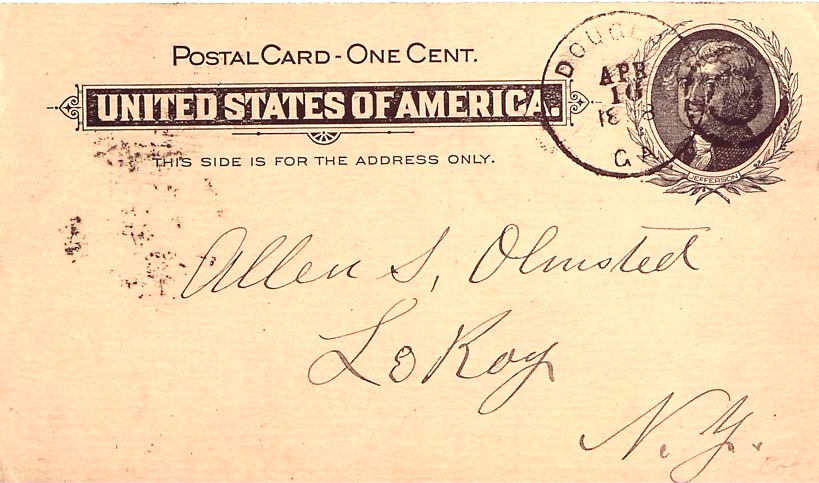 POSTAL CARD - ONE CENT.
UNITED STATES OF AMERICA.
THIS SIDE IS FOR THE ADDRESS ONLY.
DOUGL
APR
18 8
GA
JEFFERSON
Allen S. Olmsted
LeRoy
N.Y.